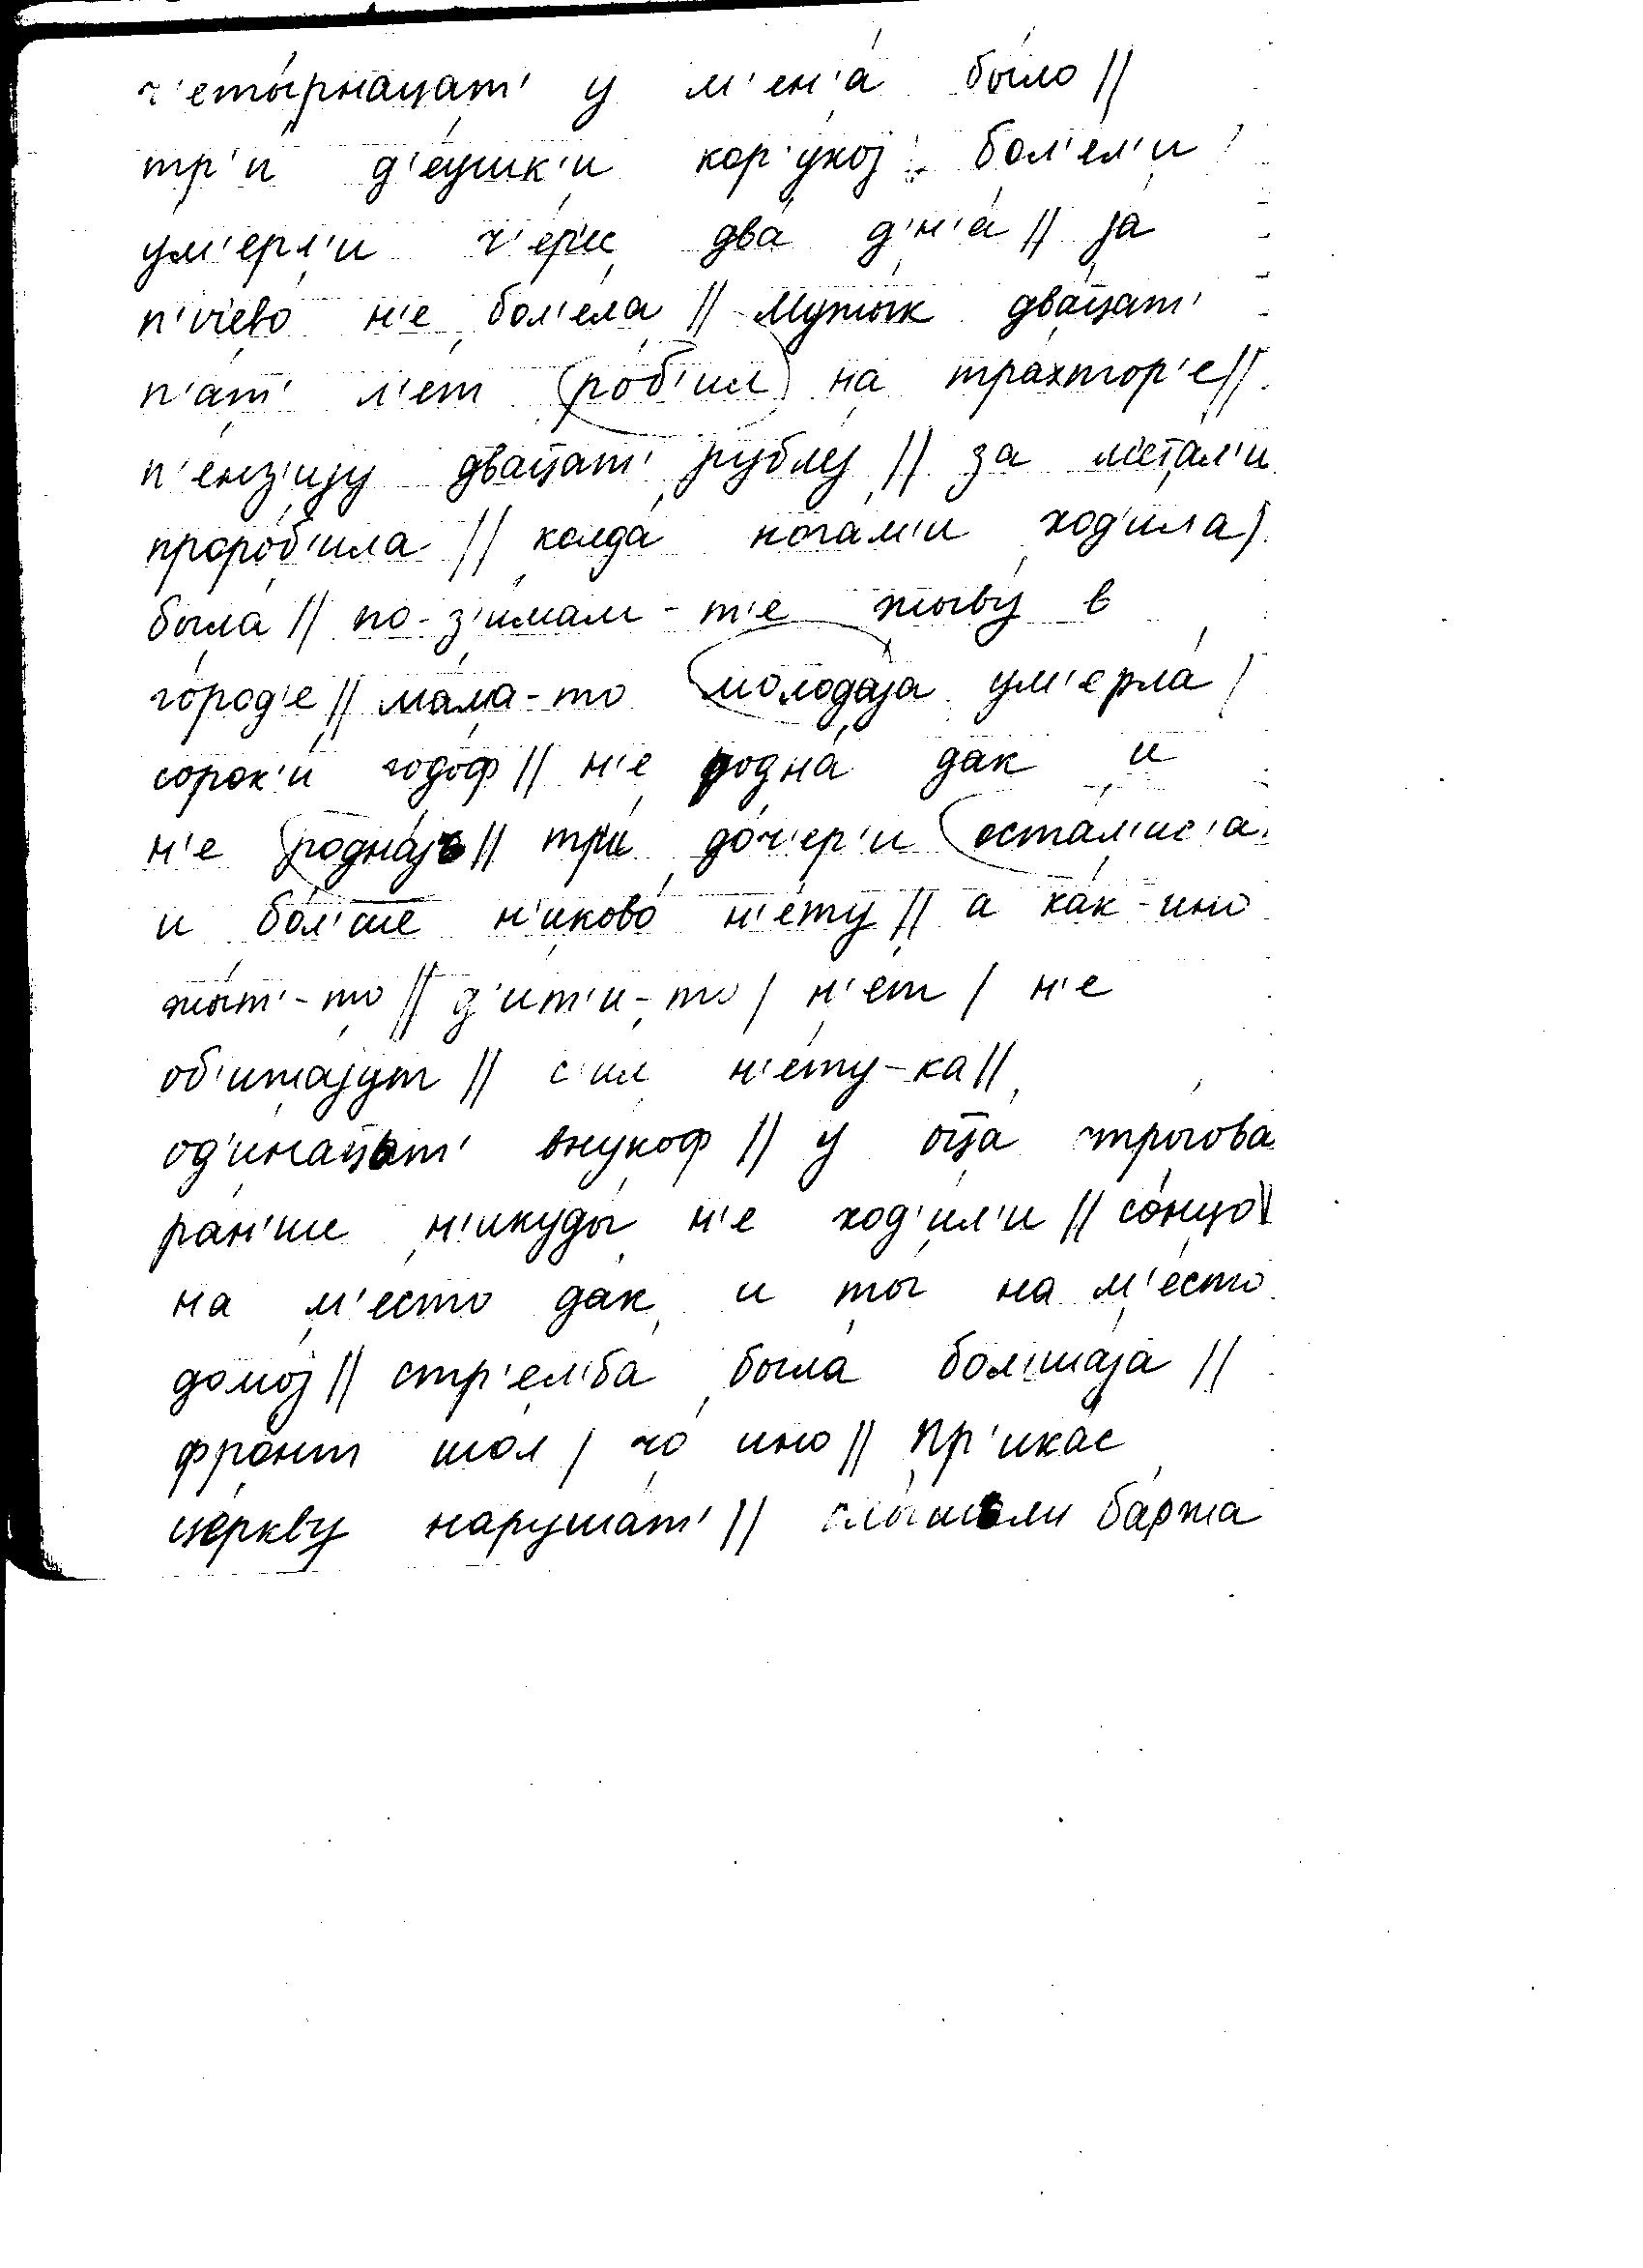 ч'еты́рнацат' у м'ен'а́ бы́ло //
тр'и д'е́ушк'и кор'у́хој бол'е́л'и /
у́м'ерл'и ч'е́р'ис два́ д'н'а́ // ја
н'ич'ево́ н'е бол'е́ла // мужы́к два́цат'
п'а́т' л'е́т ро́б'ил на тра́хтор'е //
п'е́нз'ију два́цат' рубл'у́ // за м'етал'и
проро́б'ила // колда́ нога́м'и ход'и́ла /
была́ // по-з'и́мам-т'е жыву́ в
го́род'е // ма́ма-то молода́ја ум'ерла́ /
сорок'и́ годо́ф // н'е родна́ дак и
н'е родна́јъ // тр'и́ до́ч'ер'и оста́л'ис'а
и бо́л'ше н'иково́ н'е́ту // а ка́к-ино
жы́т'-то // д'и́т'и-то / н'е́т / н'е
об'ижа́јут // с'ил н'е́ту-ка //
од'и́нацът' внукоф // у оца́ стро́гова
ра́н'ше н'икуды́ н'е ход'и́л'и // со́нцо \\
на м'е́сто дак и ты́ на м'е́сто
домо́ј // стр'ел'ба́ была́ бол'ша́ја //
фро́нт шо́л / чо́ ино // пр'ика́с
це́ркву наруша́т' // слы́шъли ба́ржа